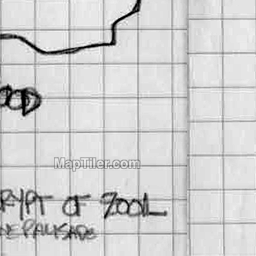 OOD
MapTiler.com
RYPT OF ZOOL
NE PALISADE